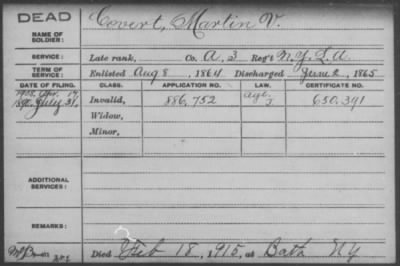 DEAD
Covert, Martin V.
NAME OF
SOLDIER:
SERVICE: Late rank, Co. A, 3 Reg't N.Y.L.A.
TERM OF
SERVICE: Enlisted Aug 8, 1864 Discharged June 2, 1865
DATE OF FILING. CLASS. APPLICATION NO. LAW. CERTIFICATE NO.
1908. Apr. 14
1890. July 31, Invalid, 886,752 Age. J 650,391
Widow,
Minor,
ADDITIONAL
SERVICES:
REMARKS:
Died Feb 18, 1915, at Bath NY